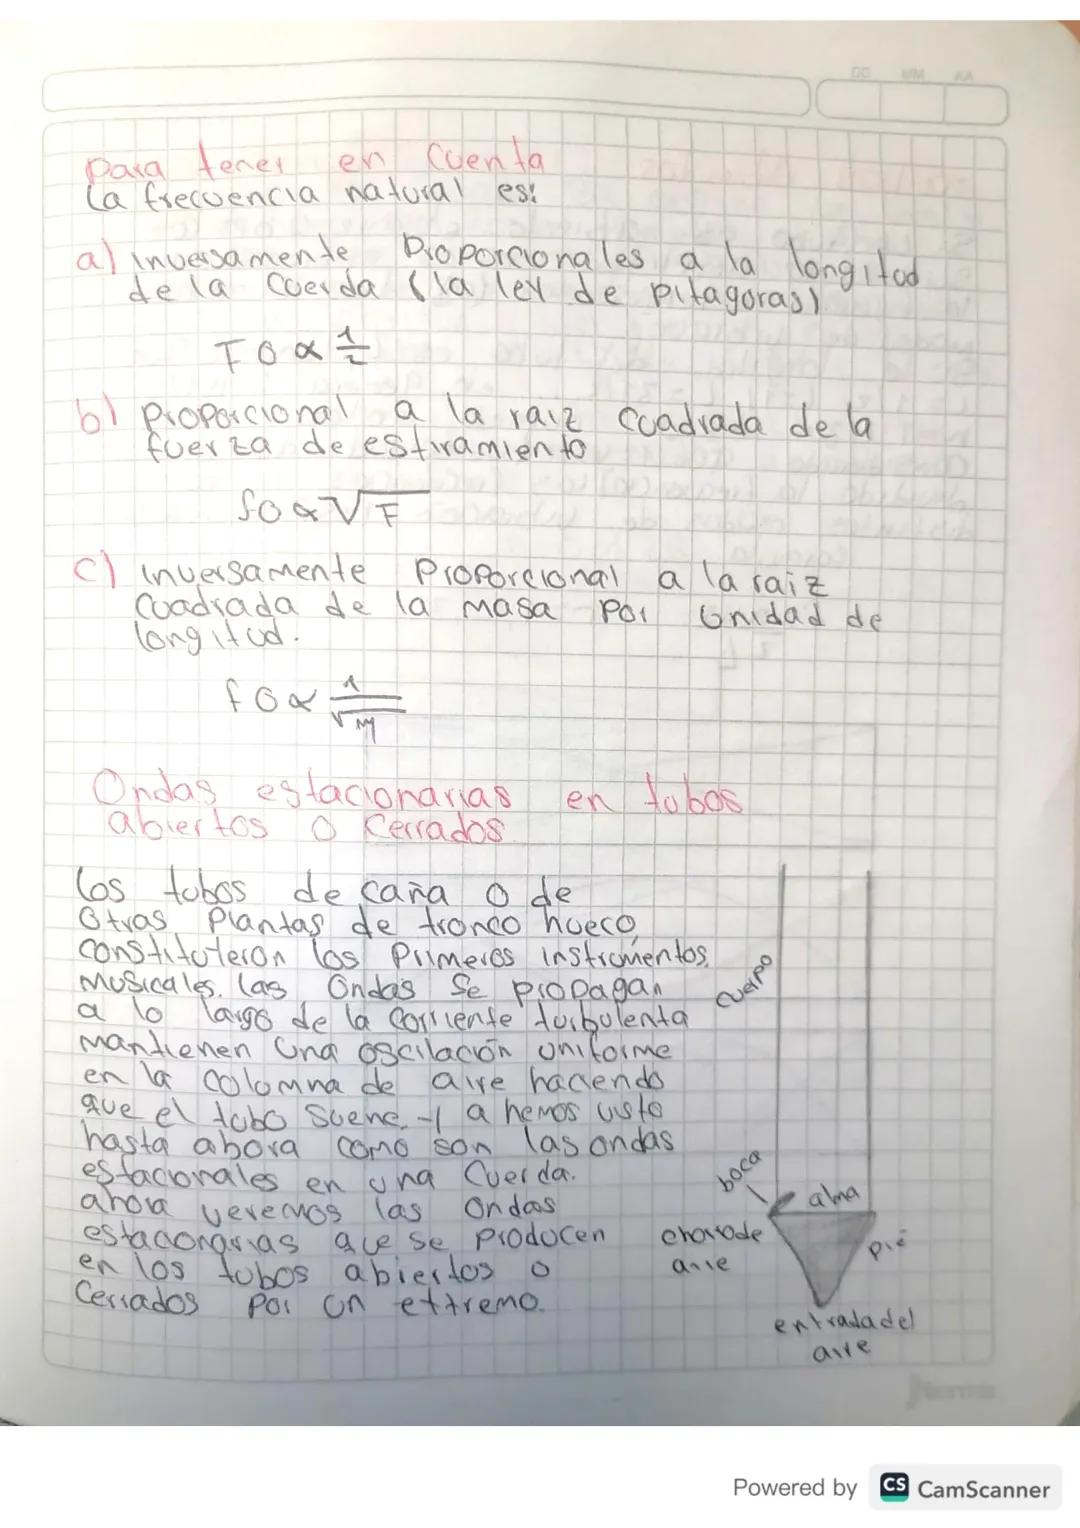 DD MM AA
Para tener en cuenta
La frecuencia natural es:
a) inversamente Proporcionales a la longitud
de la cuerda (la ley de Pitagoras)
F0 ∝ 1/2
b) Proporcional a la raiz cuadrada de la
fuerza de estiramiento
f0 ∝ √F
c) inversamente Proporcional a la raiz
cuadrada de la masa por unidad de
longitud.
f0 ∝ 1/√M
Ondas estacionarias en tubos
abiertos o cerrados
Los tubos de caña o de
otras Plantas de tronco hueco
constituyeron los Primeros instrumentos
musicales. las ondas se propagan
a lo largo de la corriente turbulenta
mantienen una oscilación uniforme
en la columna de aire haciendo
que el tubo suene. -y a hemos visto
hasta ahora como son las ondas
estacionales en una cuerda.
ahora veremos las ondas
estacionarias que se Producen
en los tubos abiertos o
cerrados por un extremo.
cuerpo
boca
alma
chorro de
aire
pie
entrada del
aire
Norma
Powered by CS CamScanner